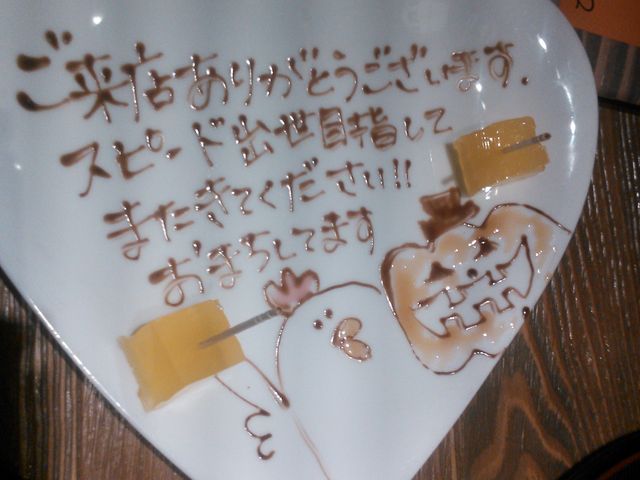 ご来店ありがとうございます.
スピード出世目指して
またきてください!!
おまちしてます